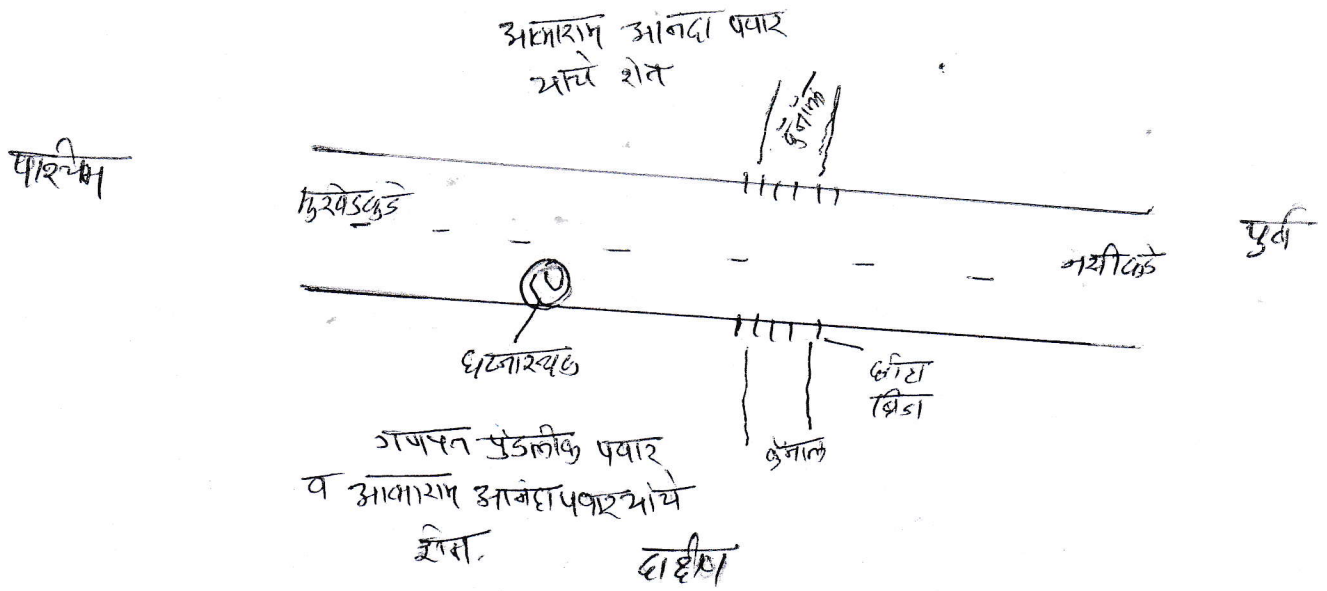 आत्माराम आनंदा पवार
यांचे शेत
कॅनॉल
पाश्चिम
पुर्व
नर्सीकडे
घटनास्थळ
छोटा
ब्रिज
कॅनाल
गणपत पुंडलीक पवार
व आत्माराम आनंदा पवार यांचे
शेत.
दक्षीण